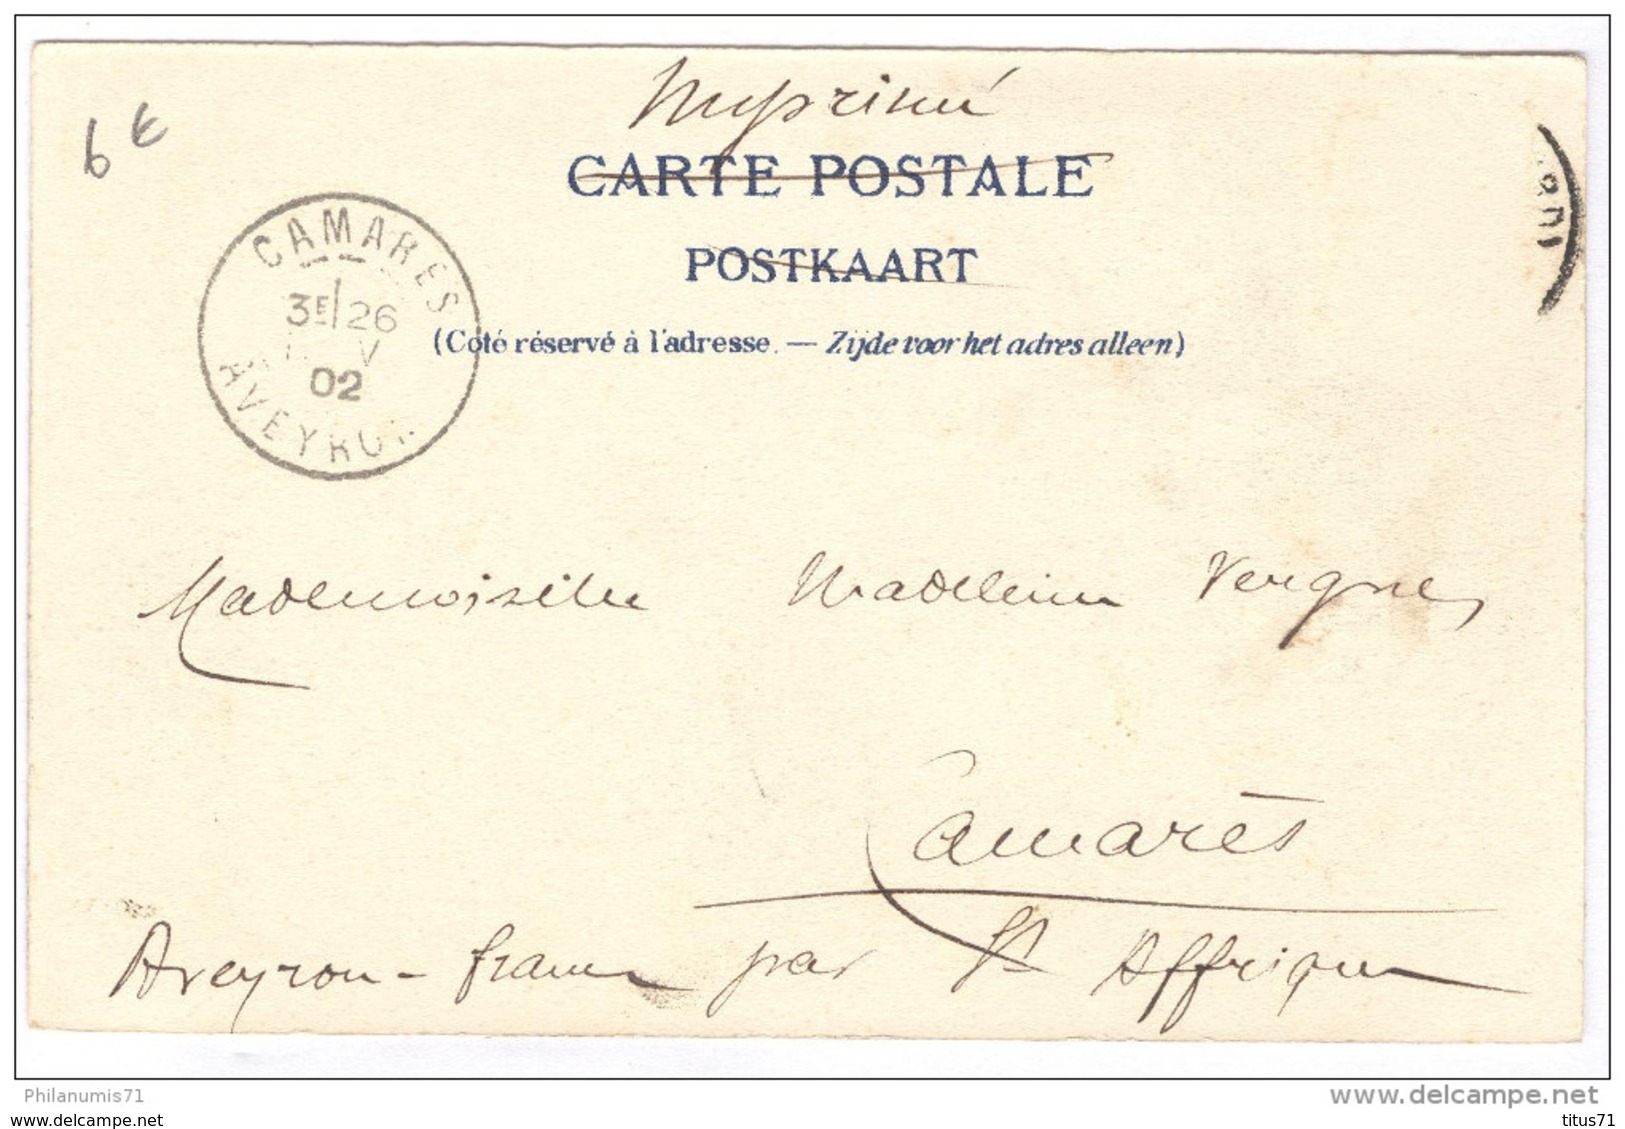 Imprimé
6€
CARTE POSTALE
POSTKAART
(Coté réservé à l'adresse. — Zijde voor het adres alleen)
CAMARES
3E/26
V
02
AVEYRON
Mademoiselle Madeleine Vergnes
Camarès
Aveyron - france par St Affrique
Philanumis71
www.delcampe.net
delcampe.net
titus71